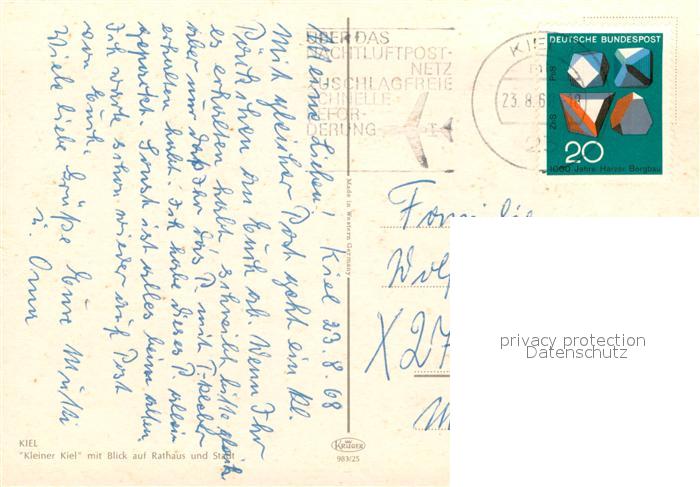 Meine Lieben! Kiel 23.8.68
Mit gleicher Post geht ein kl.
Päckchen an Euch ab. Wenn Ihr
es erhalten habt schreibt bitte gleich
aber nur daß Ihr das P. mit T-
erhalten habt. Ich habe dieses P. allein
gepackt. Sonst ist alles beim alten.
Ich warte schon wieder auf Post
von Euch.
Viele liebe Grüße Eure Mutti
u. Oma
ÜBER DAS
NACHTLUFTPOST-
NETZ
ZUSCHLAGFREIE
SCHNELLE
BEFÖR-
DERUNG
KIEL
23.8.6
DEUTSCHE BUNDESPOST
PbS
ZnS
20
1000 Jahre Harzer Bergbau
Made in Western Germany
Familie
X27
privacy protection
Datenschutz
KIEL
"Kleiner Kiel" mit Blick auf Rathaus und Stadt
KRÜGER
983/25